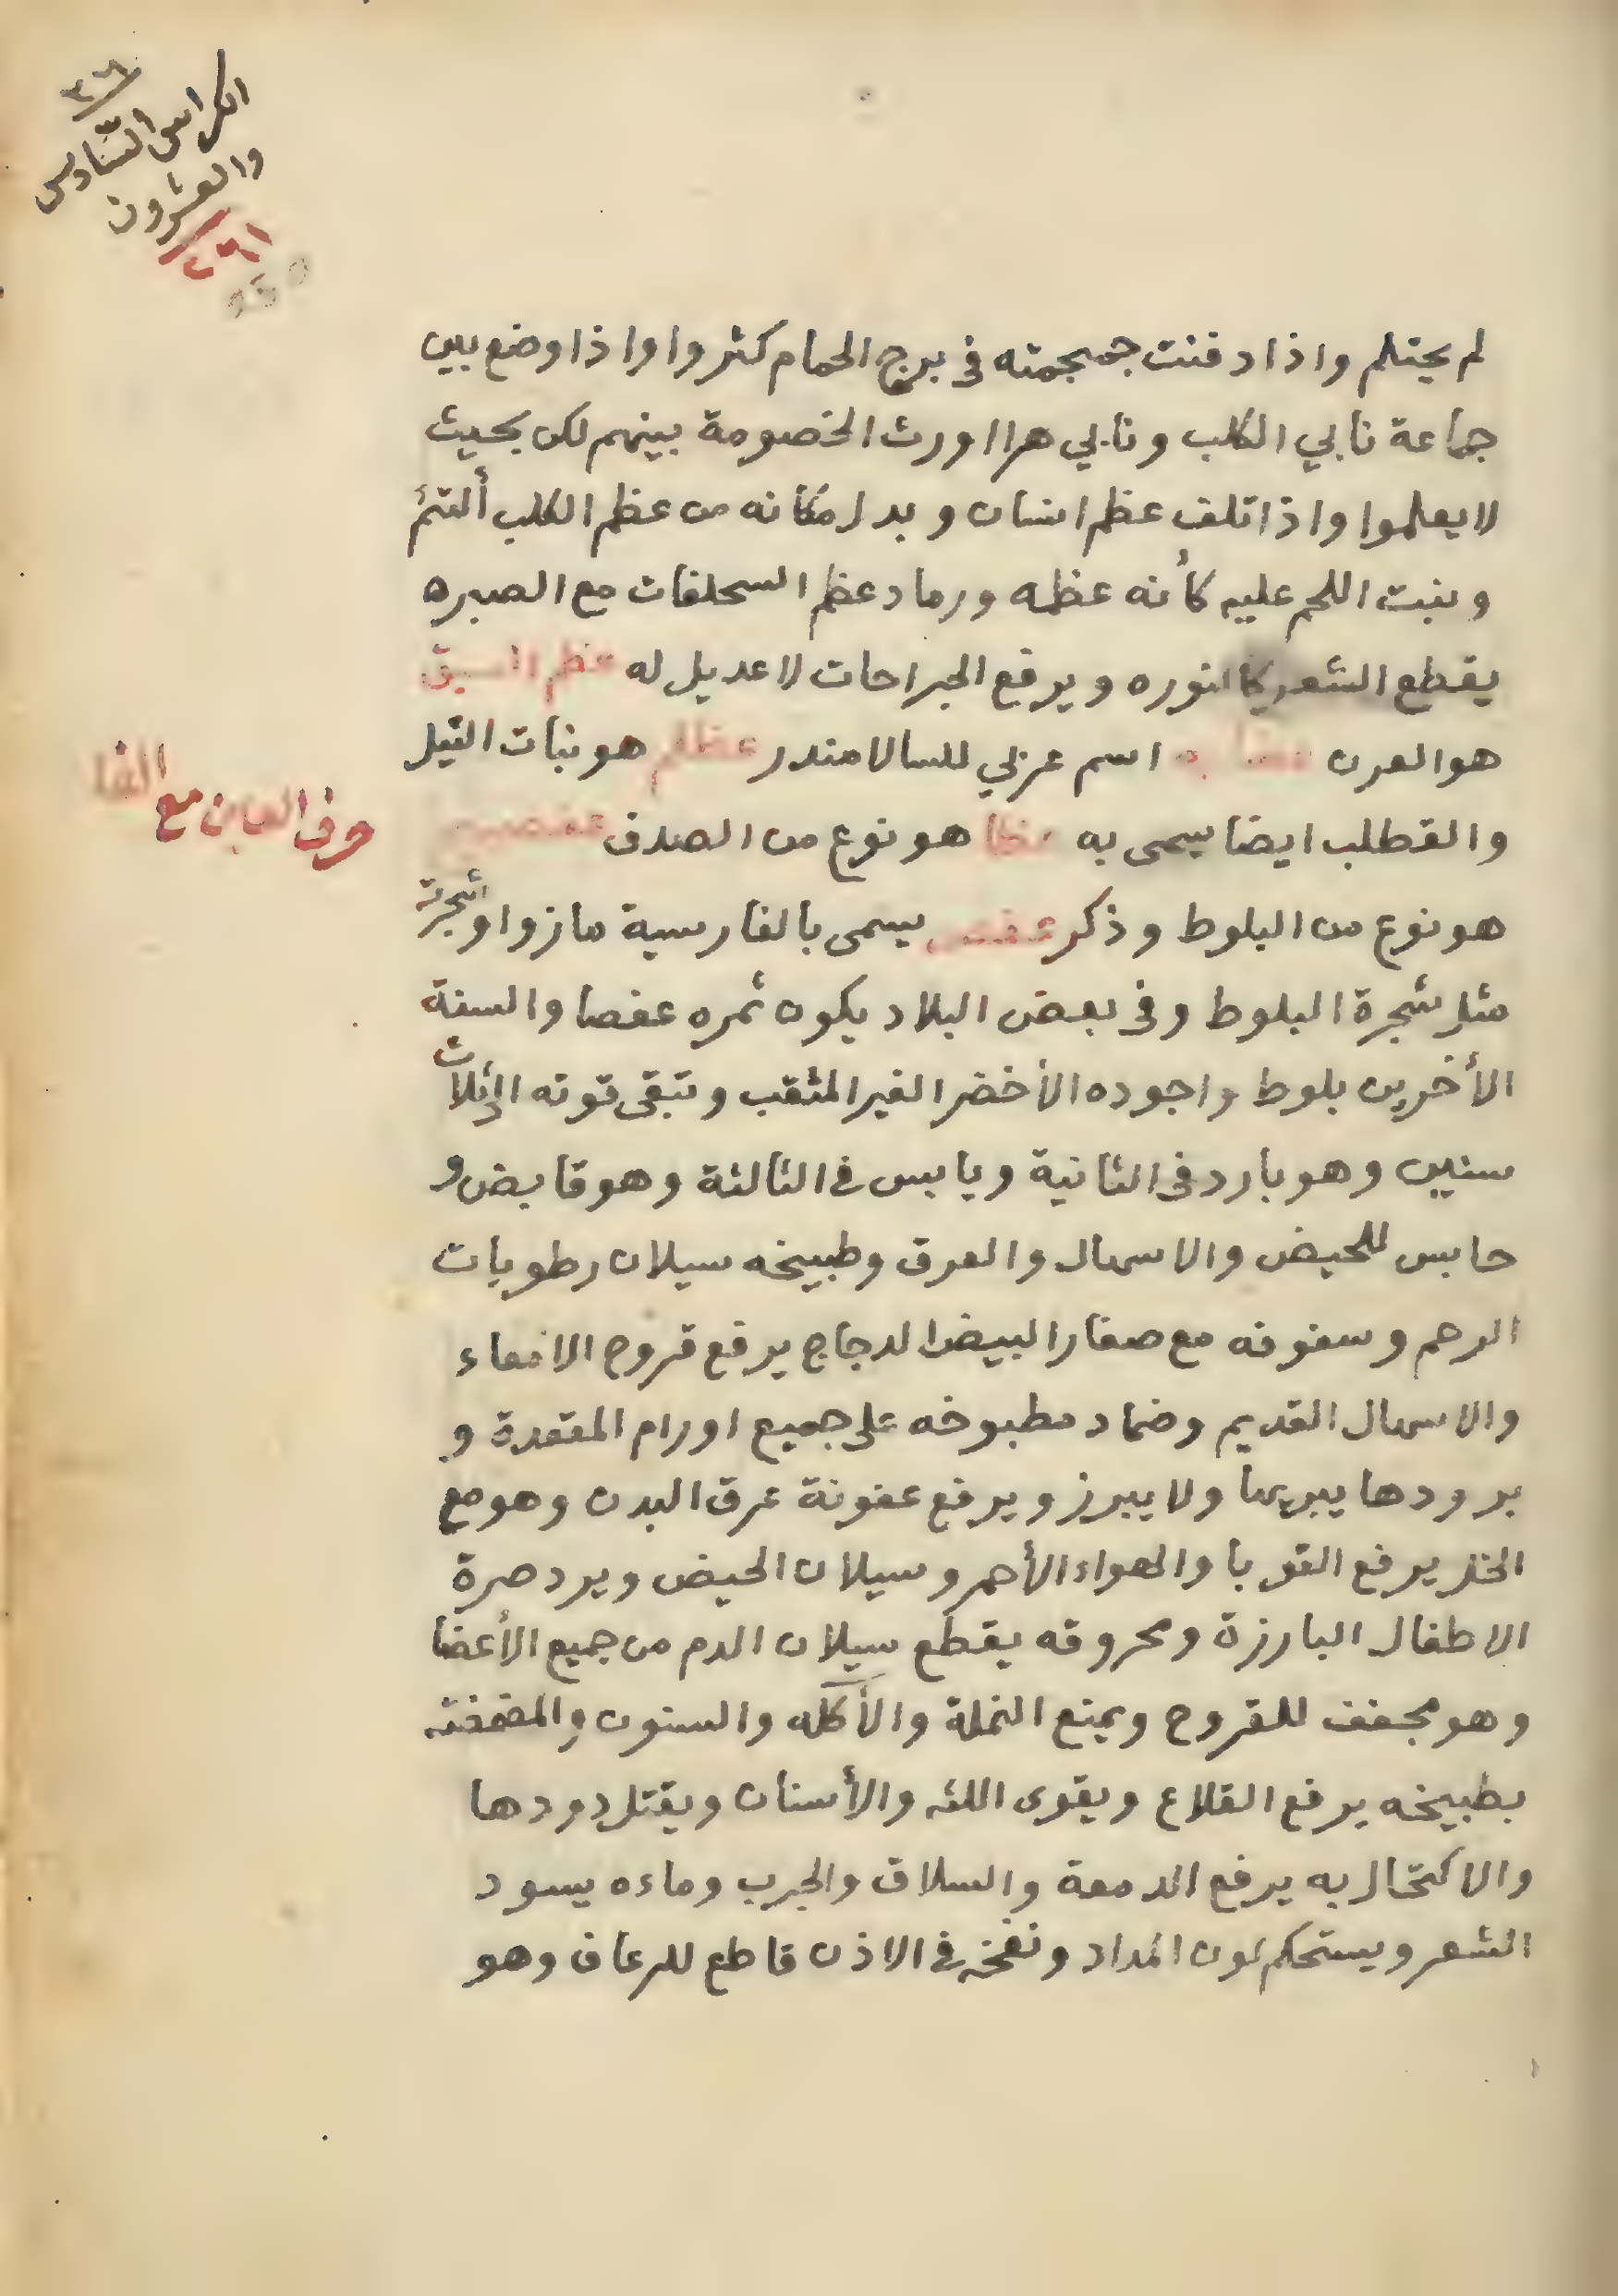 ٢٦
الكراس السّادس
والعشرون
٢٦١
لم يحتلم واذا دفنت جمجمته فى برج الحمام كثروا واذا وضع بين
جماعة نابي الكلب ونابي هرا اورث الخصومة بينهم لكن بحيث
لا يعلموا واذا تلف عظم انسان و بدل مكانه من عظم الكلب ألتئم
و ينبت اللحم عليه كأنه عظمه ورماد عظم السحلفات مع الصبره
يقطع الشعر كالنوره و يرفع الجراحات لا عديل له عظم
هو العرن اسم عربي للسالامندر عظلم هو نبات النيل
والقطلب ايضا يسمى به عظا هو نوع من الصدف
حرف العين مع الفا
هو نوع من البلوط و ذكر عفص يسمى بالفارسية مازوا وشجرته
مثل شجرة البلوط وفى بعض البلاد يكون ثمره عفصا والسنة
الأخرين بلوط واجوده الأخضر الغير المثقب وتبقى قوته الى ثلاث
سنين وهو بارد فى الثانية ويابس فى الثالثة وهو قابض و
حابس للحيض والاسهال والعرق وطبيخه سيلان رطوبات
الرحم وسفوفه مع صفار البيض الدجاج يرفع قروح الامعاء
والاسهال القديم وضماد مطبوخه على جميع اورام المقعدة و
برودها يبريها ولا يبرز ويرفع عفونة عرق البدن وهو مع
الخل يرفع القوبا والهواء الأحمر وسيلان الحيض ويرد صرة
الاطفال البارزة ومحروقه يقطع سيلان الدم من جميع الأعضا
وهو مجفف للقروح ويمنع النملة والآكله والسنون والمضمضته
بطبيخه يرفع القلاع ويقوى اللثه والأسنان ويقتل دودها
والاكتحال به يرفع الدمعة والسلاق والجرب وماءه يسود
الشعر ويستحكم لون المداد ونفخه فى الاذن قاطع للرعاف وهو